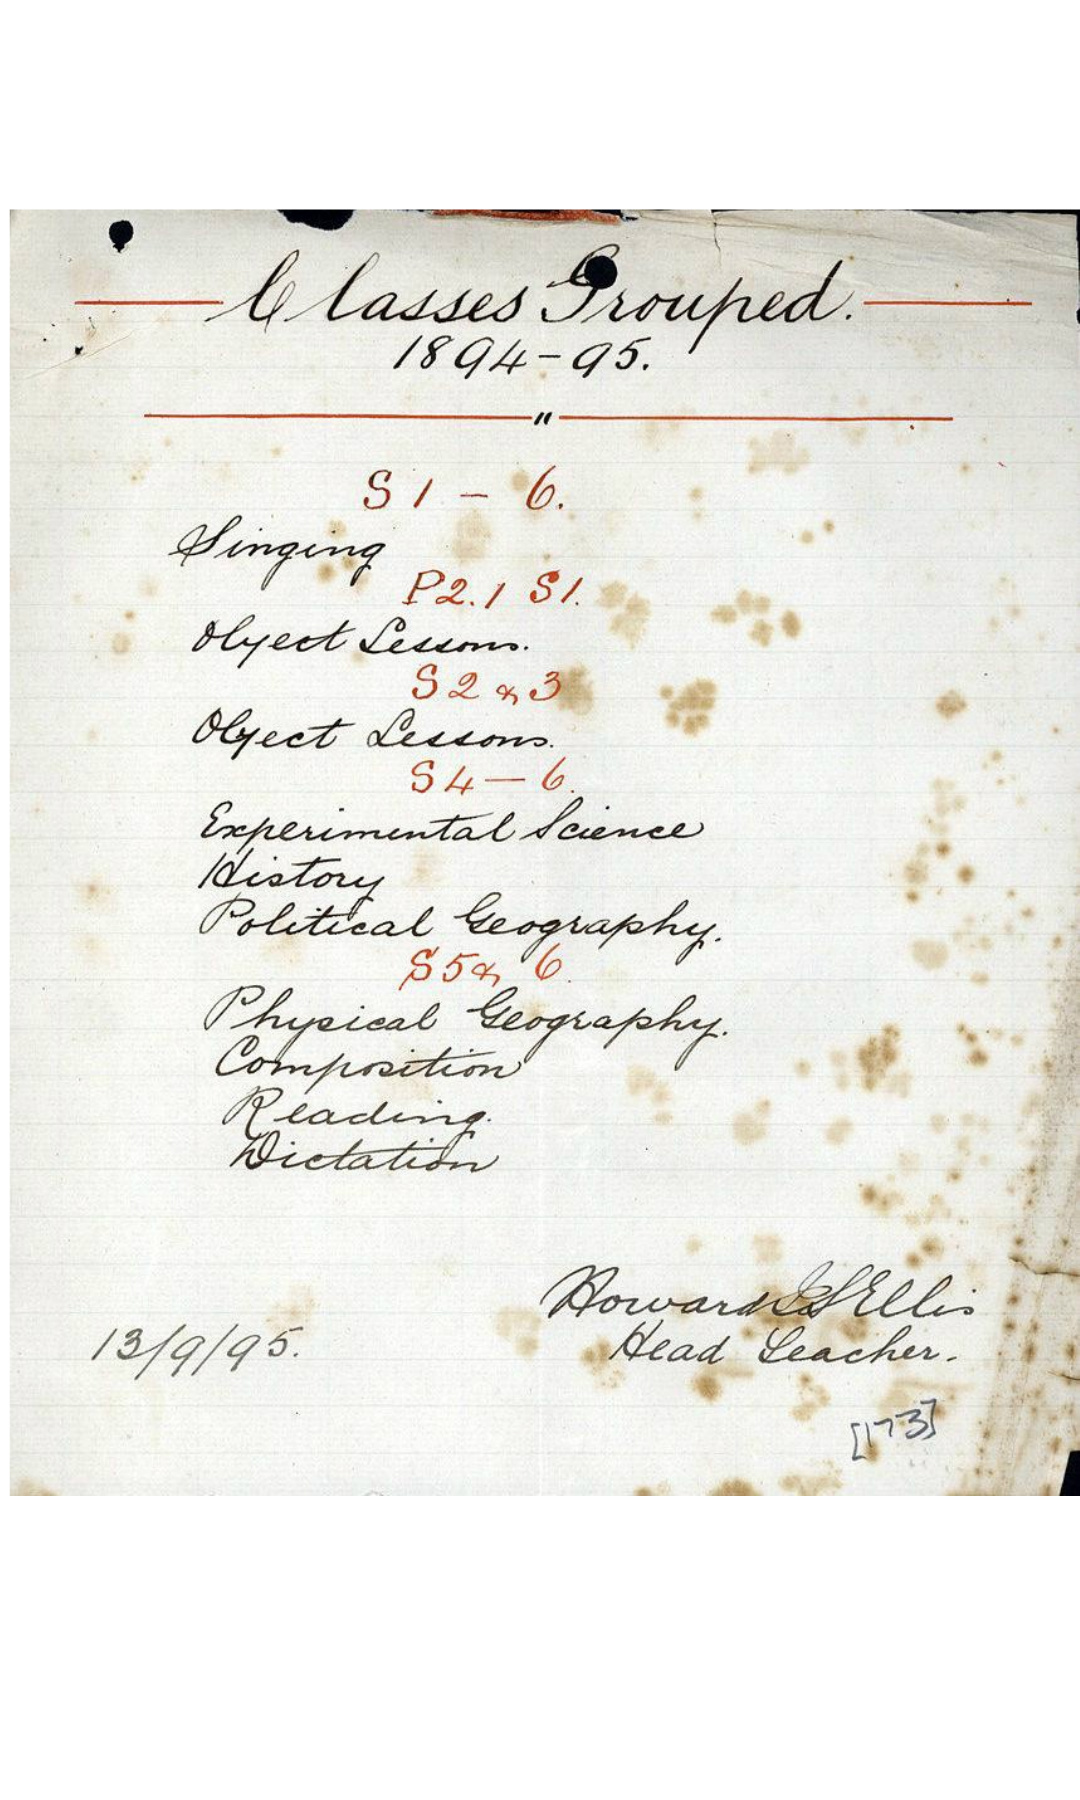 Classes Grouped.
1894-95.
"
S1 - 6.
Singing
P2.1 S1.
Object Lessons.
S2 & 3
Object Lessons.
S4 - 6.
Experimental Science
History
Political Geography.
S5 & 6.
Physical Geography.
Composition
Reading.
Dictation
Howard Ellis
Head Teacher.
13/9/95.
[173]